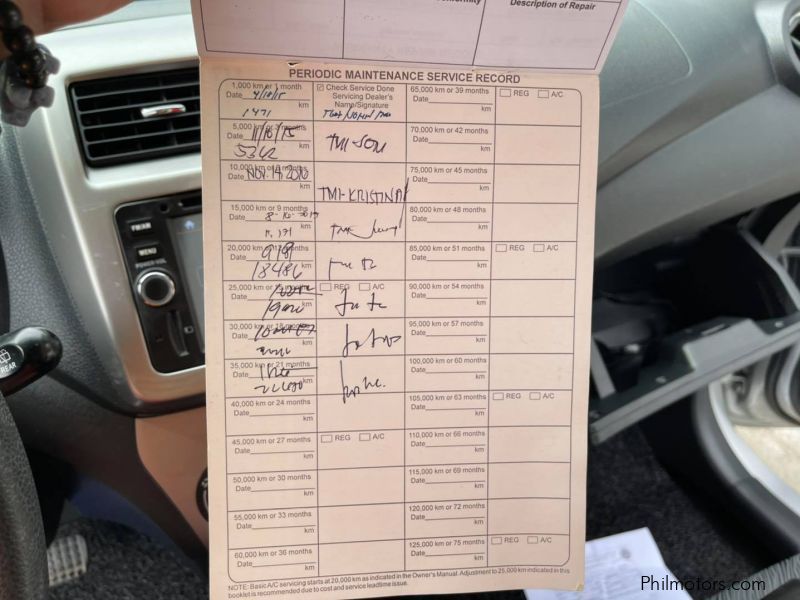 Conformity
Description of Repair
PERIODIC MAINTENANCE SERVICE RECORD
1,000 km or 1 month
Date 4/18/15
km
1471
Check Service Done
Servicing Dealer's
Name/Signature
65,000 km or 39 months
Date
km
REG A/C
5,000 km or 3 months
Date 11/10/15
5362 km
TMI-SON
70,000 km or 42 months
Date
km
10,000 km or 6 months
Date NOV. 14, 2016
km
TMI-KRISTINA
75,000 km or 45 months
Date
km
15,000 km or 9 months
Date
km
80,000 km or 48 months
Date
km
20,000 km or 12 months
Date
18486 km
85,000 km or 51 months
Date
km
REG A/C
25,000 km or 15 months
Date
km
REG A/C
90,000 km or 54 months
Date
km
30,000 km or 18 months
Date
km
95,000 km or 57 months
Date
km
35,000 km or 21 months
Date
km
100,000 km or 60 months
Date
km
40,000 km or 24 months
Date
km
105,000 km or 63 months
Date
km
REG A/C
45,000 km or 27 months
Date
km
REG A/C
110,000 km or 66 months
Date
km
50,000 km or 30 months
Date
km
115,000 km or 69 months
Date
km
55,000 km or 33 months
Date
km
120,000 km or 72 months
Date
km
60,000 km or 36 months
Date
km
125,000 km or 75 months
Date
km
REG A/C
NOTE: Basic A/C servicing starts at 20,000 km as indicated in the Owner's Manual. Adjustment to 25,000 km indicated in this
booklet is recommended due to cost and service leadtime issue.
FM/AM
MENU
POWER VOL
REAR
Philmotors.com